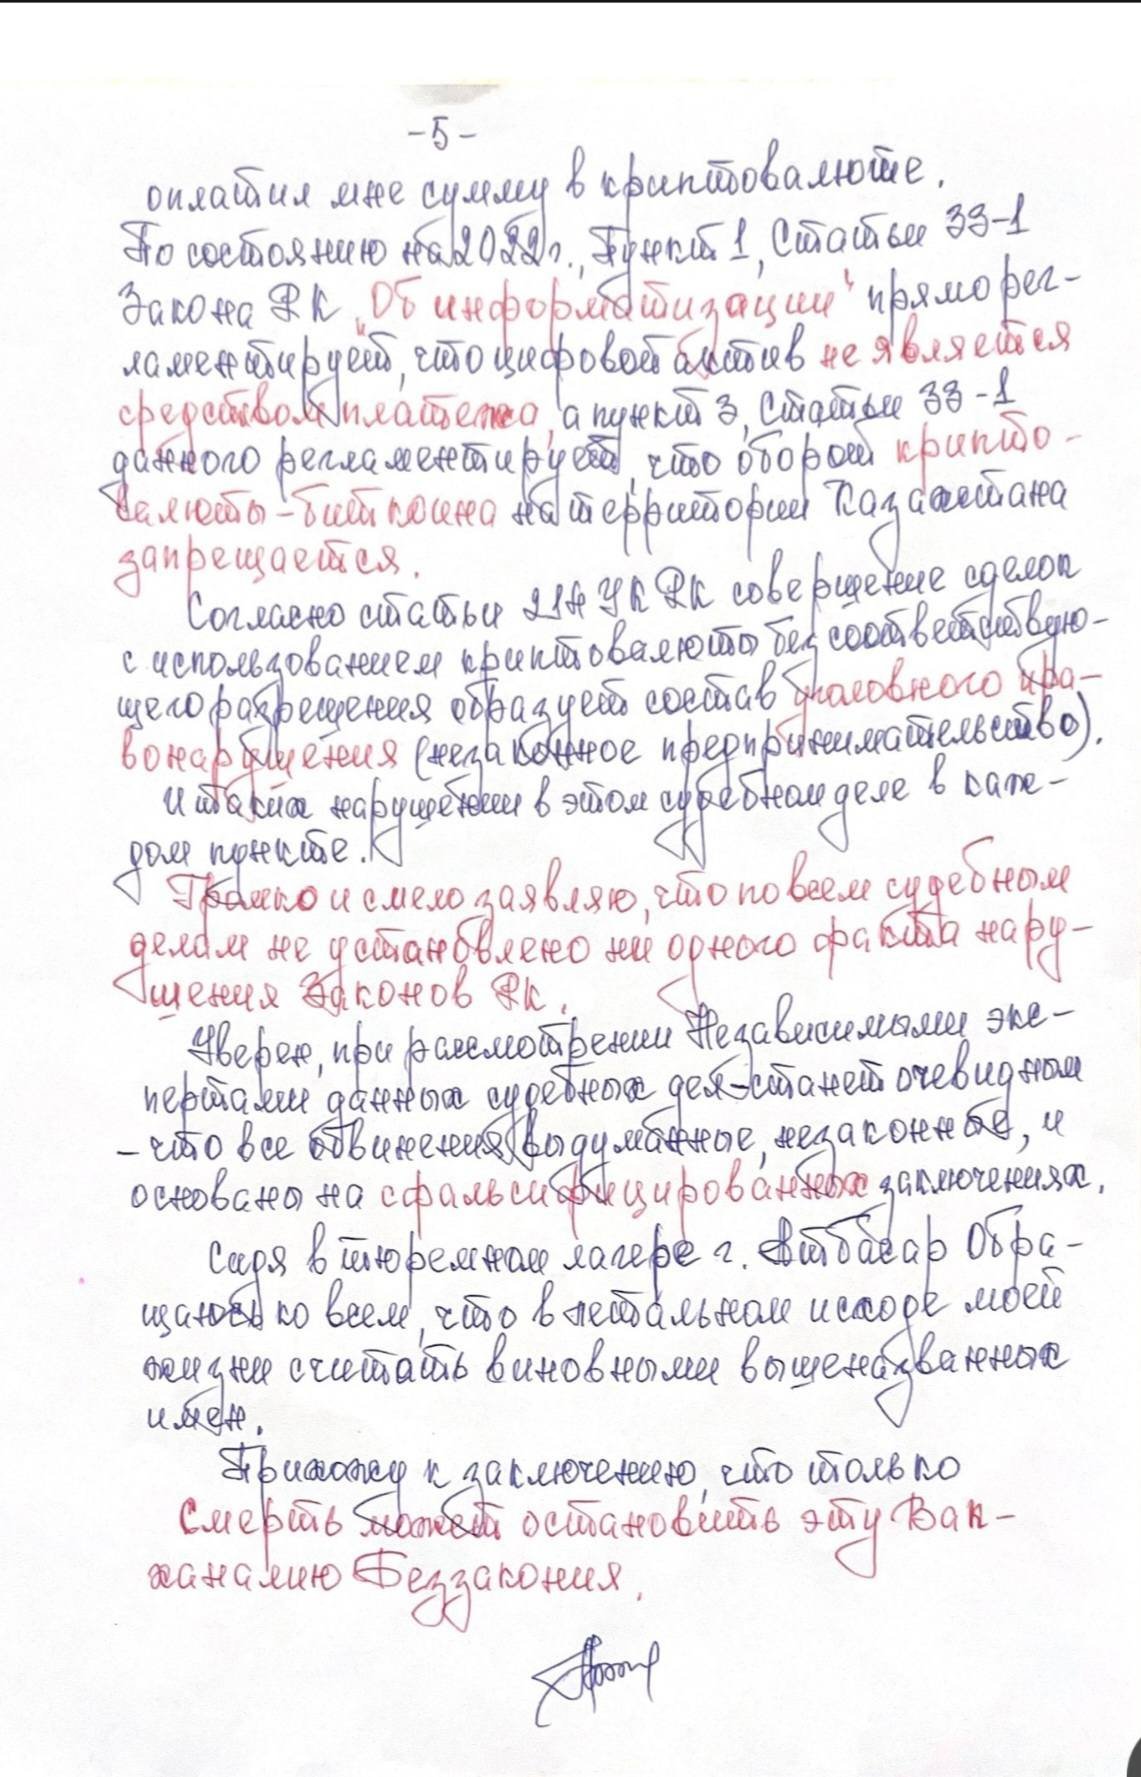 -5-
оплатил мне сумму в криптовалюте.
По состоянию на 2022г., Пункт 1, Статьи 33-1
Закона РК "Об информатизации" прямо рег-
ламентирует, что цифровой актив не является
средством платежа, а пункт 3, Статьи 33-1
данного регламентирует, что оборот крипто-
валюты - биткоина на территории Казахстана
запрещается.
Согласно статьи 214 УК РК совершение сделок
с использованием криптовалюты без соответствую-
щего разрешения образует состав уголовного пра-
вонарушения (незаконное предпринимательство).
И таких нарушений в этом судебном деле в каж-
дом пункте.
Громко и смело заявляю, что по всем судебным
делам не установлено ни одного факта нару-
шения Законов РК.
Уверен, при рассмотрении Независимыми экс-
пертами данных судебных дел - станет очевидным
- что все обвинения выдуманные, незаконные, и
основаны на сфальсифицированных заключениях.
Сидя в тюремном лагере г. Атбасар Обра-
щаюсь ко всем, что в летальном исходе моей
жизни считать виновными вышеназванных
имен.
Прихожу к заключению, что только
Смерть может остановить эту Вак-
ханалию Беззакония.